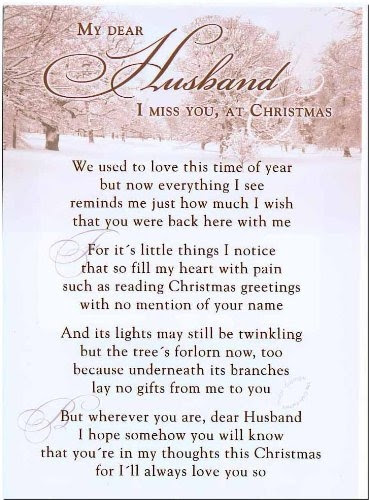 My dear
Husband
I miss you, at Christmas
We used to love this time of year
but now everything I see
reminds me just how much I wish
that you were back here with me
For it´s little things I notice
that so fill my heart with pain
such as reading Christmas greetings
with no mention of your name
And its lights may still be twinkling
but the tree´s forlorn now, too
because underneath its branches
lay no gifts from me to you
But wherever you are, dear Husband
I hope somehow you will know
that you´re in my thoughts this Christmas
for I´ll always love you so